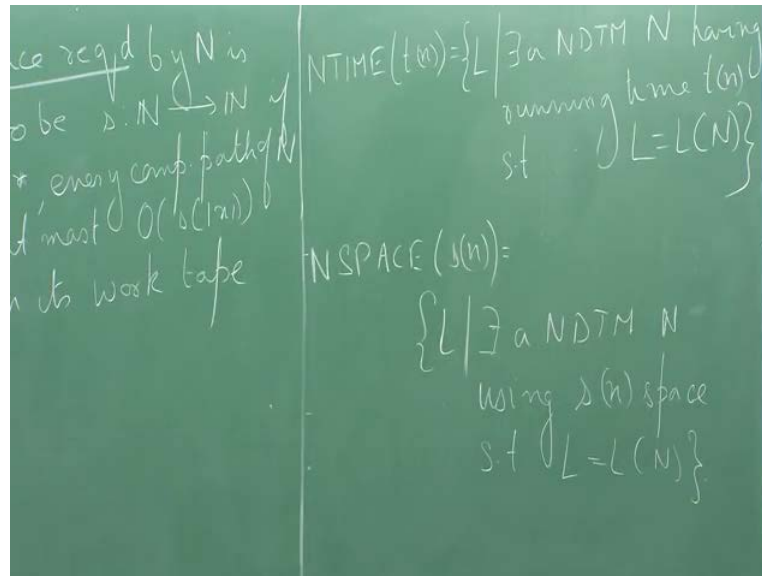 ce reqd by N is
o be s: ℕ → ℕ if
* every comp. path of N
t most O(s(|x|))
n its work tape
NTIME(t(n))={L | ∃ a NDTM N having
running time t(n)
s.t L=L(N)}
NSPACE(s(n))=
{L | ∃ a NDTM N
using s(n) space
s.t L=L(N)}.